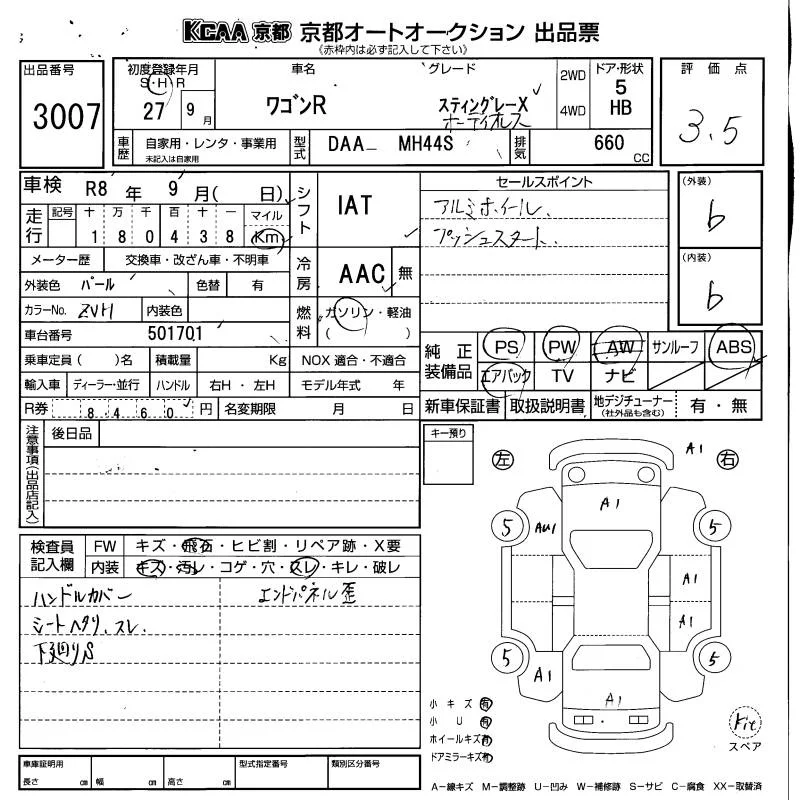 KCAA 京都 京都オートオークション 出品票
(赤枠内は必ず記入して下さい)
出品番号 3007
初度登録年月 S・H・R 27 9月
車名 ワゴンR
グレード スティングレーX
オーディオレス
2WD 4WD
ドア・形状 5 HB
評価点 3.5
車歴 自家用・レンタ・事業用 未記入は自家用
型式 DAA- MH44S
排気 660 CC
車検 R8年 9月( 日)
走行 記号 十 万 千 百 十 一 マイル
1 8 0 4 3 8 Km
メーター歴 交換車・改ざん車・不明車
外装色 パール 色替 有
カラーNo. ZVH 内装色
車台番号 501701
乗車定員( )名 積載量 Kg NOX 適合・不適合
輸入車 ディーラー・並行 ハンドル 右H・左H モデル年式 年
R券 8460円 名変期限 月 日
シフト IAT
冷房 AAC 無
燃料 ガソリン・軽油
( )
セールスポイント
アルミホイール、
プッシュスタート、
(外装) b
(内装) b
純正装備品 PS PW AW サンルーフ ABS
エアバック TV ナビ
新車保証書 取扱説明書 地デジチューナー(社外品も含む) 有・無
注意事項(出品店記入) 後日品
キー預り
検査員記入欄 FW キズ・飛石・ヒビ割・リペア跡・X要
内装 キズ・汚レ・コゲ・穴・スレ・キレ・破レ
ハンドルカバー
シートヘタリ、スレ、
下廻りS
エンドパネル歪
左 右
A1
A1
5 AU1 5
A1
A1
5 A1 5
A1
小キズ 有
小U 有
ホイールキズ 有
ドアミラーキズ 有
Kit
スペア
車庫証明用 長さ cm 幅 cm 高さ cm
型式指定番号 類別区分番号
A-線キズ M-調整跡 U-凹み W-補修跡 S-サビ C-腐食 XX-取替済